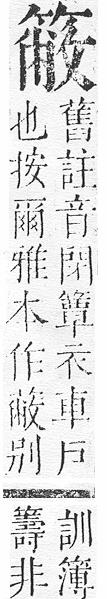 舊註音閉簟衣車戶
也按爾雅本作蔽别
訓簿
籌非